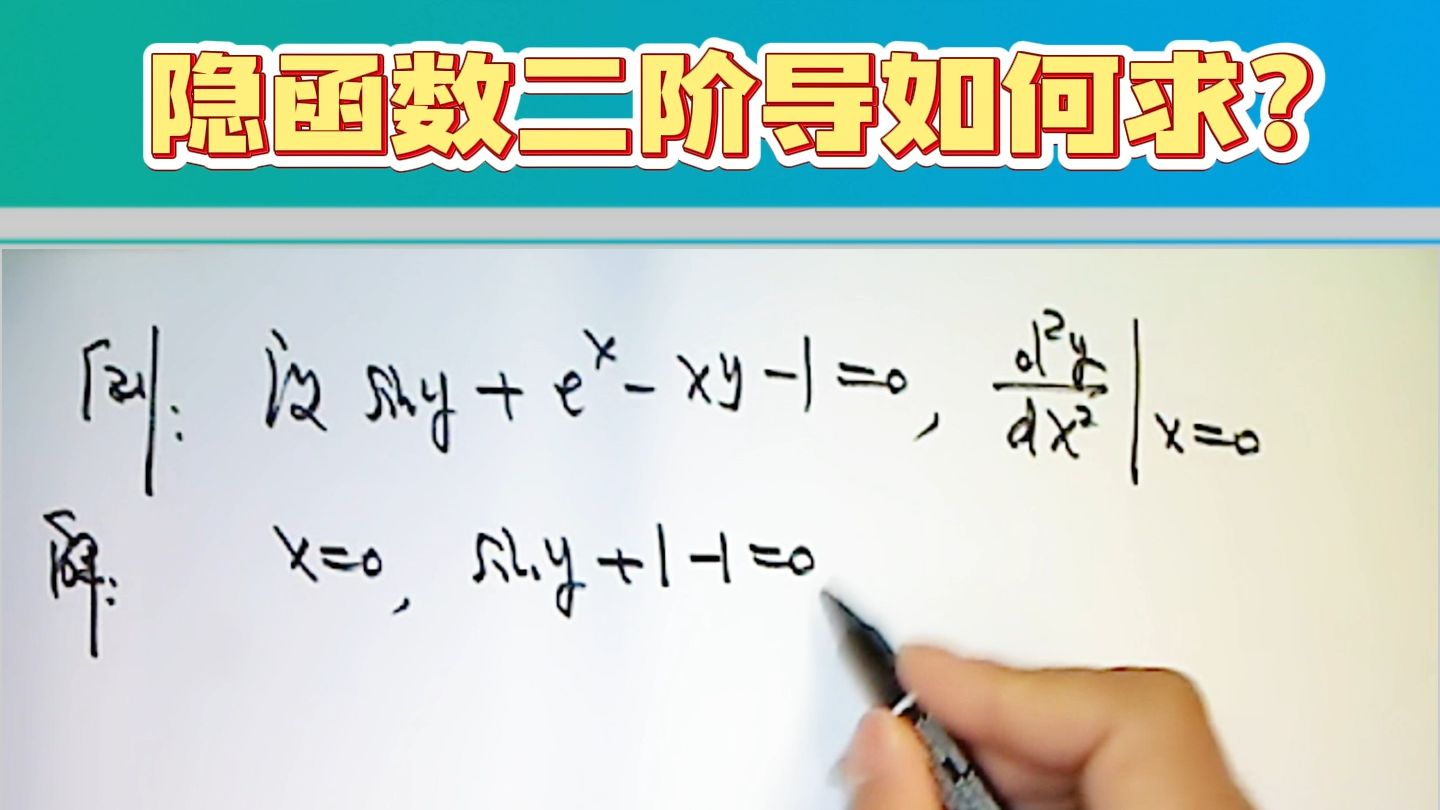 隐函数二阶导如何求?
例: 设 siny + e^x - xy - 1 = 0, d²y/dx² | x=0
解: x=0, siny + 1 - 1 = 0